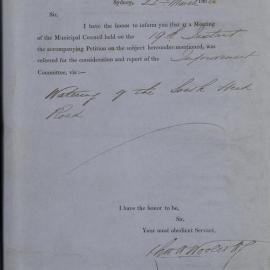 Sydney, 22 March 18
Sir,
I have the honor to inform you that at a Meeting
of the Municipal Council held on the 19th Instant
the accompanying Petition on the subject hereunder-mentioned, was
referred for the consideration and report of the Improvement
Committee, viz:—
Watering of the South Head
Road
I have the honor to be,
Sir,
Your most obedient Servant,
Chas H Woolcott